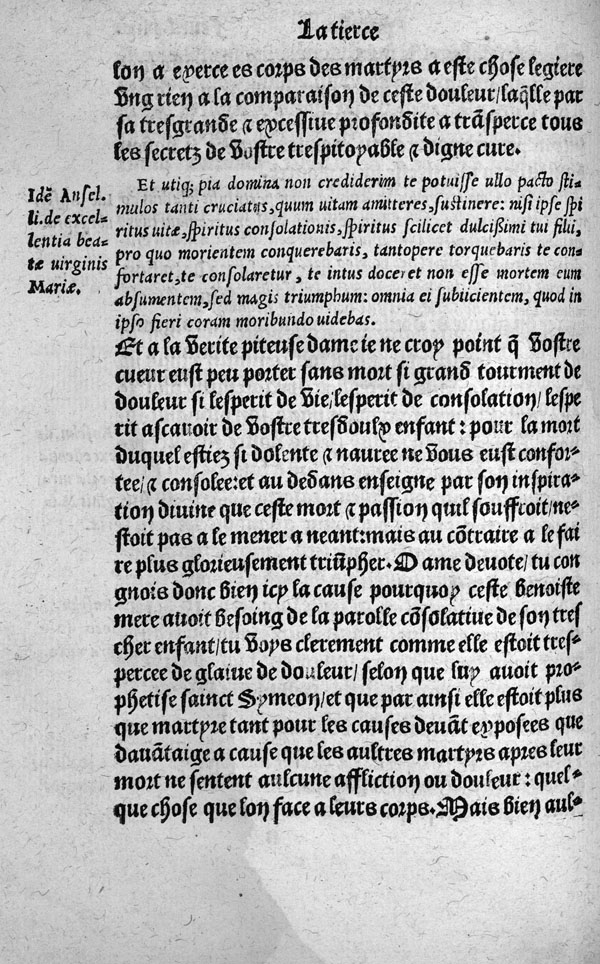 La tierce
lon a exerce es corps des martyrs a este chose legiere
Ung rien a la comparaison de ceste douleur/laq̃lle par
sa tresgrande & excessive profondite a trãsperce tous
les secretz de Vostre trespitoyable & digne cure.
Idẽ Ansel.
li. de excel-
lentia bea-
tæ virginis
Mariæ.
Et utiq; pia domina non crediderim te potuisse ullo pacto sti-
mulos tanti cruciatus, quum uitam amitteres, sustinere: nisi ipse spi
ritus uitæ, spiritus consolationis, spiritus scilicet dulcißimi tui filii,
pro quo morientem conquerebaris, tantopere torquebaris te con
fortaret, te consolaretur, te intus doceret non esse mortem eum
absumentem, sed magis triumphum: omnia ei subiicientem, quod in
ipso fieri coram moribundo uidebas.
Et a la Verite piteuse dame ie ne croy point q̃ Vostre
cueur eust peu porter sans mort si grand tourment de
douleur si lesperit de Vie/lesperit de consolation/lespe
rit ascauoir de Vostre tresdoulx enfant: pour la mort
duquel estiez si dolente & nauree ne Vous eust confor-
tee/& consolee: et au dedans enseigne par son inspira-
tion divine que ceste mort & passion quil souffroit/ne-
stoit pas a le mener a neant: mais au cõtraire a le fai
re plus glorieusement triũpher. O ame devote/tu con
gnois donc bien icy la cause pourquoy ceste benoiste
mere avoit besoing de la parolle cõsolative de son tres
cher enfant/tu Voys clerement comme elle estoit tres-
percee de glaive de douleur/selon que luy avoit pro-
phetise sainct Symeon/et que par ainsi elle estoit plus
que martyre tant pour les causes devãt exposees que
davãtaige a cause que les aultres martyrs apres leur
mort ne sentent aulcune affliction ou douleur: quel-
que chose que lon face a leurs corps. Mais bien aul-